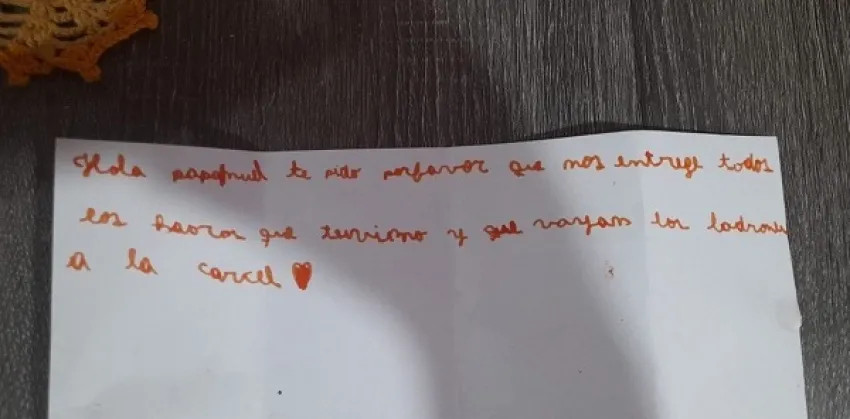 Hola papanuel te pido porfavor que nos entrege todos
los haoros que tenrismo y que vayan los ladrones
a la carcel